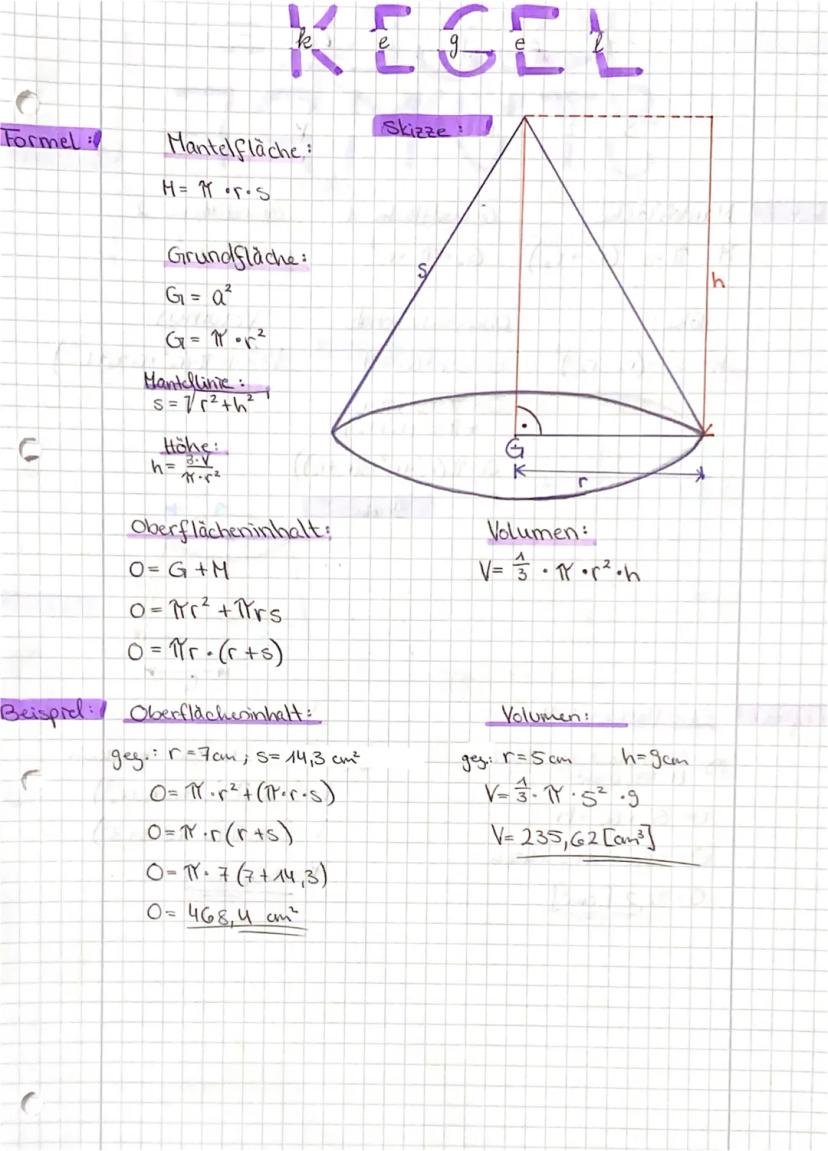 KEGEL
k e g e l
Formel:
Mantelfläche:
M = π · r · s
Grundfläche:
G = a²
G = π · r²
Mantellinie:
s = √r² + h²
Höhe:
h = 3·V / π·r²
Skizze:
s
h
G
r
Oberflächeninhalt:
O = G + M
O = πr² + πrs
O = πr · (r + s)
Volumen:
V = 1/3 · π · r² · h
Beispiel:
Oberflächeninhalt:
geg.: r = 7cm ; s = 14,3 cm²
O = π · r² + (π · r · s)
O = π · r (r + s)
O = π · 7 (7 + 14,3)
O = 468,4 cm²
Volumen:
geg.: r = 5 cm h = 9cm
V = 1/3 · π · 5² · 9
V = 235,62 [cm³]